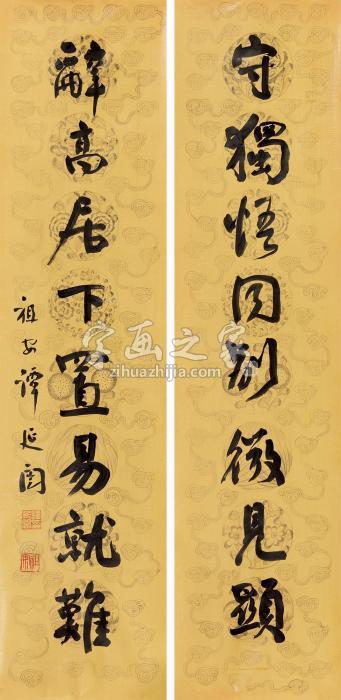 守獨悟同別微見顯
辭高居下置易就難
祖安譚延闓
字画之家
zihuazhijia.com